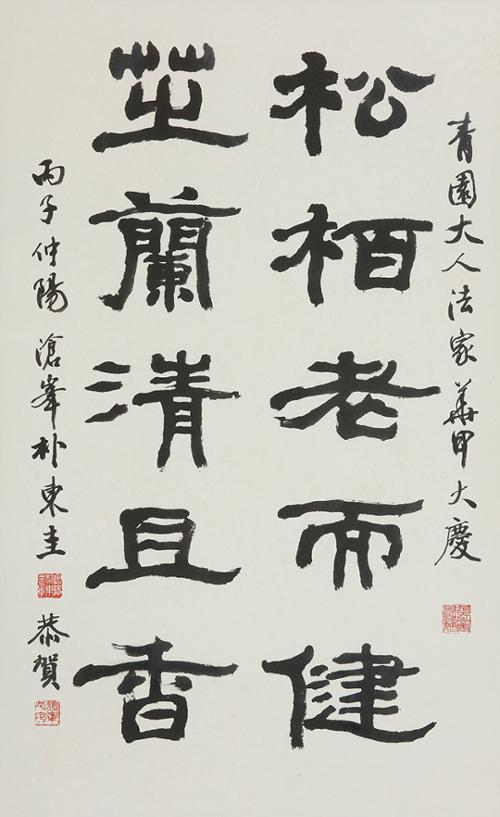 青園大人法家華甲大慶
松栢老而健
芝蘭清且香
丙子仲陽滄峯朴東圭
恭賀